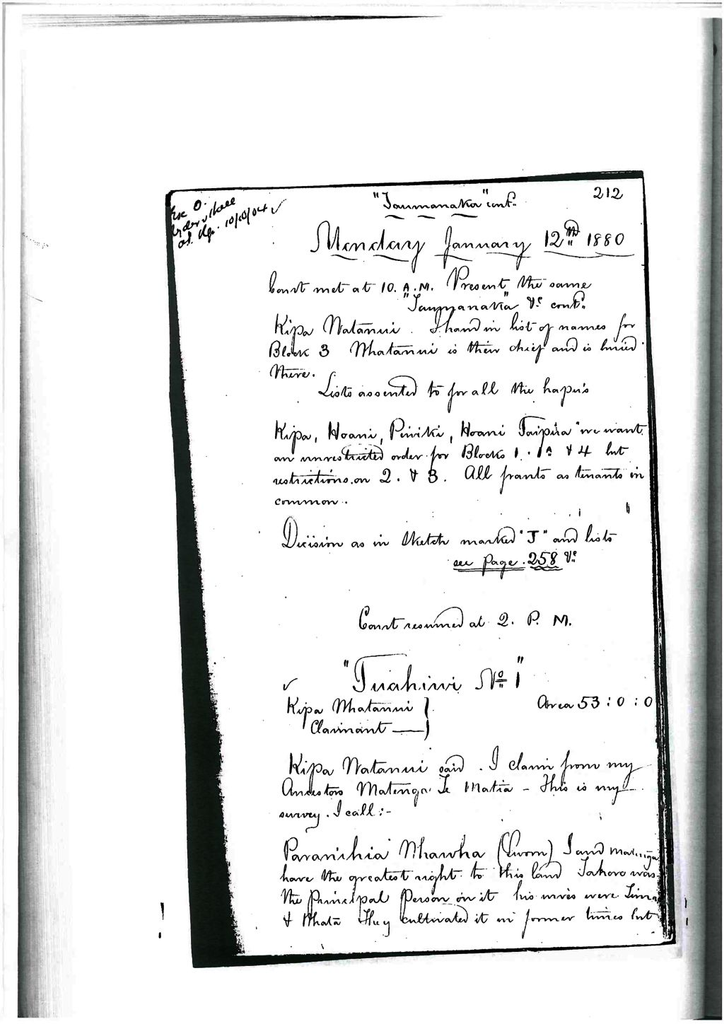 "Taumanaka" cont. 212
10/10/04 ✓
Monday January 12th 1880
Court met at 10. A.M. Present the same
"Taumanaka" &c cont.
Kipa Watanui. I hand in list of names for
Block 3 Whatanui is their chief and is buried
there.
Lists assented to for all the hapu's
Kipa, Hoani, Piwiki, Hoani Taipua "we want
an unrestricted order for Blocks 1. 1A & 4 but
restrictions on 2. & 3. All grants as tenants in
common.
Decision as in Sketch marked "J" and lists
see page. 258 &c
Court resumed at 2. P. M.
✓ "Tuahiwi No 1"
Kipa Whatanui } Area 53 : 0 : 0
Claimant — }
Kipa Watanui said. I claim from my
Ancestors Matenga Te Matia - This is my
survey. I call :-
Paranihia Whawha (Sworn) I and Matenga
have the greatest right to this land was
the Principal Person on it his were
& Whata They cultivated it in former times but